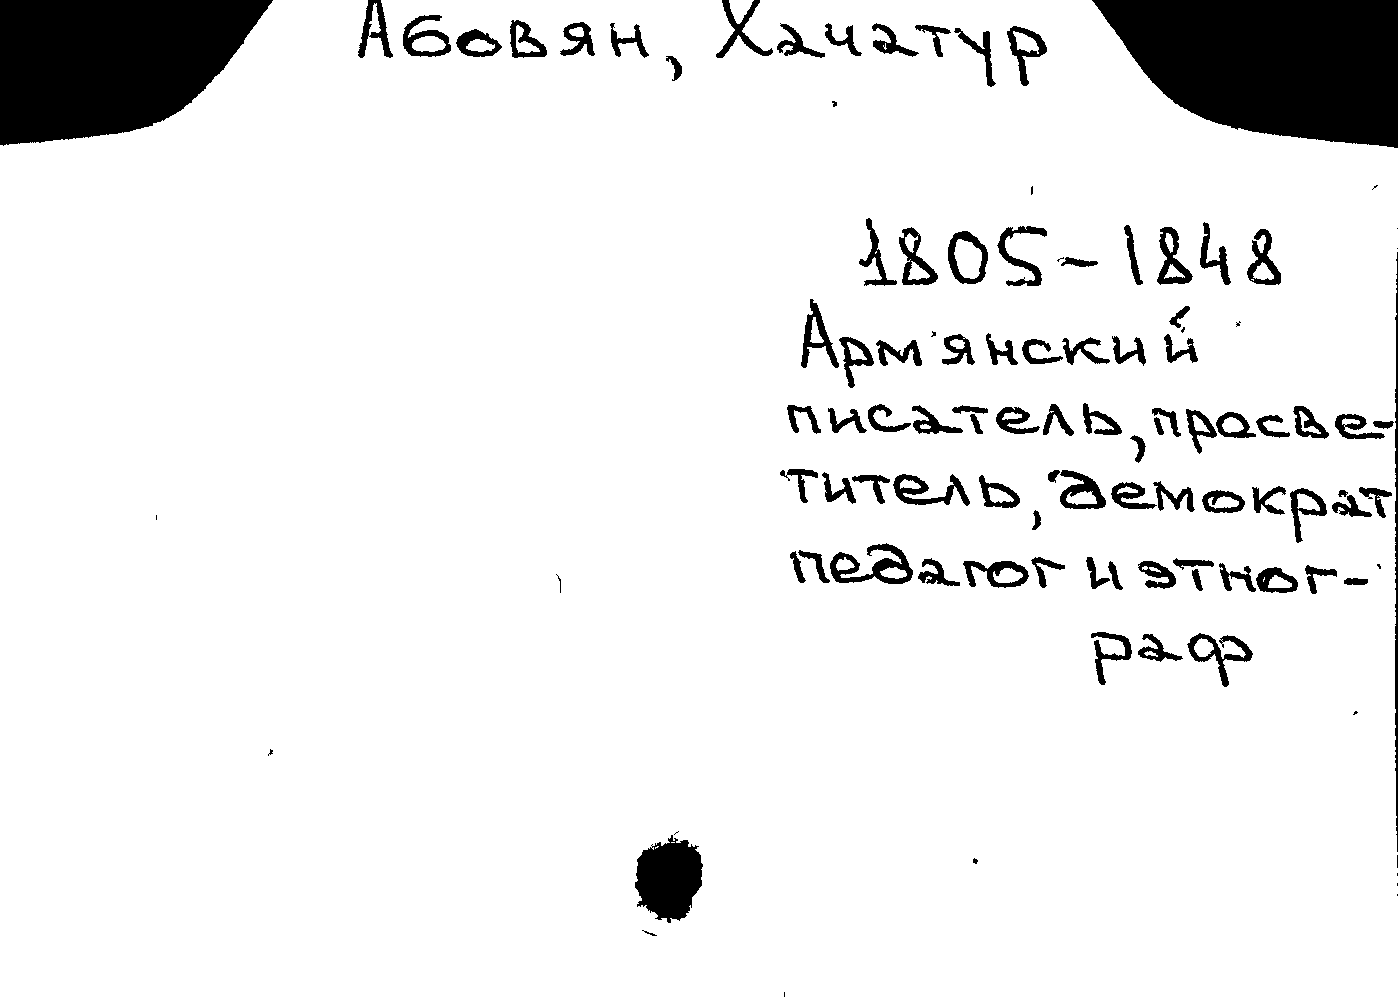 Абовян, Хачатур
1805-1848
Армянский
писатель, просве-
титель, демократ
педагог и этног-
раф